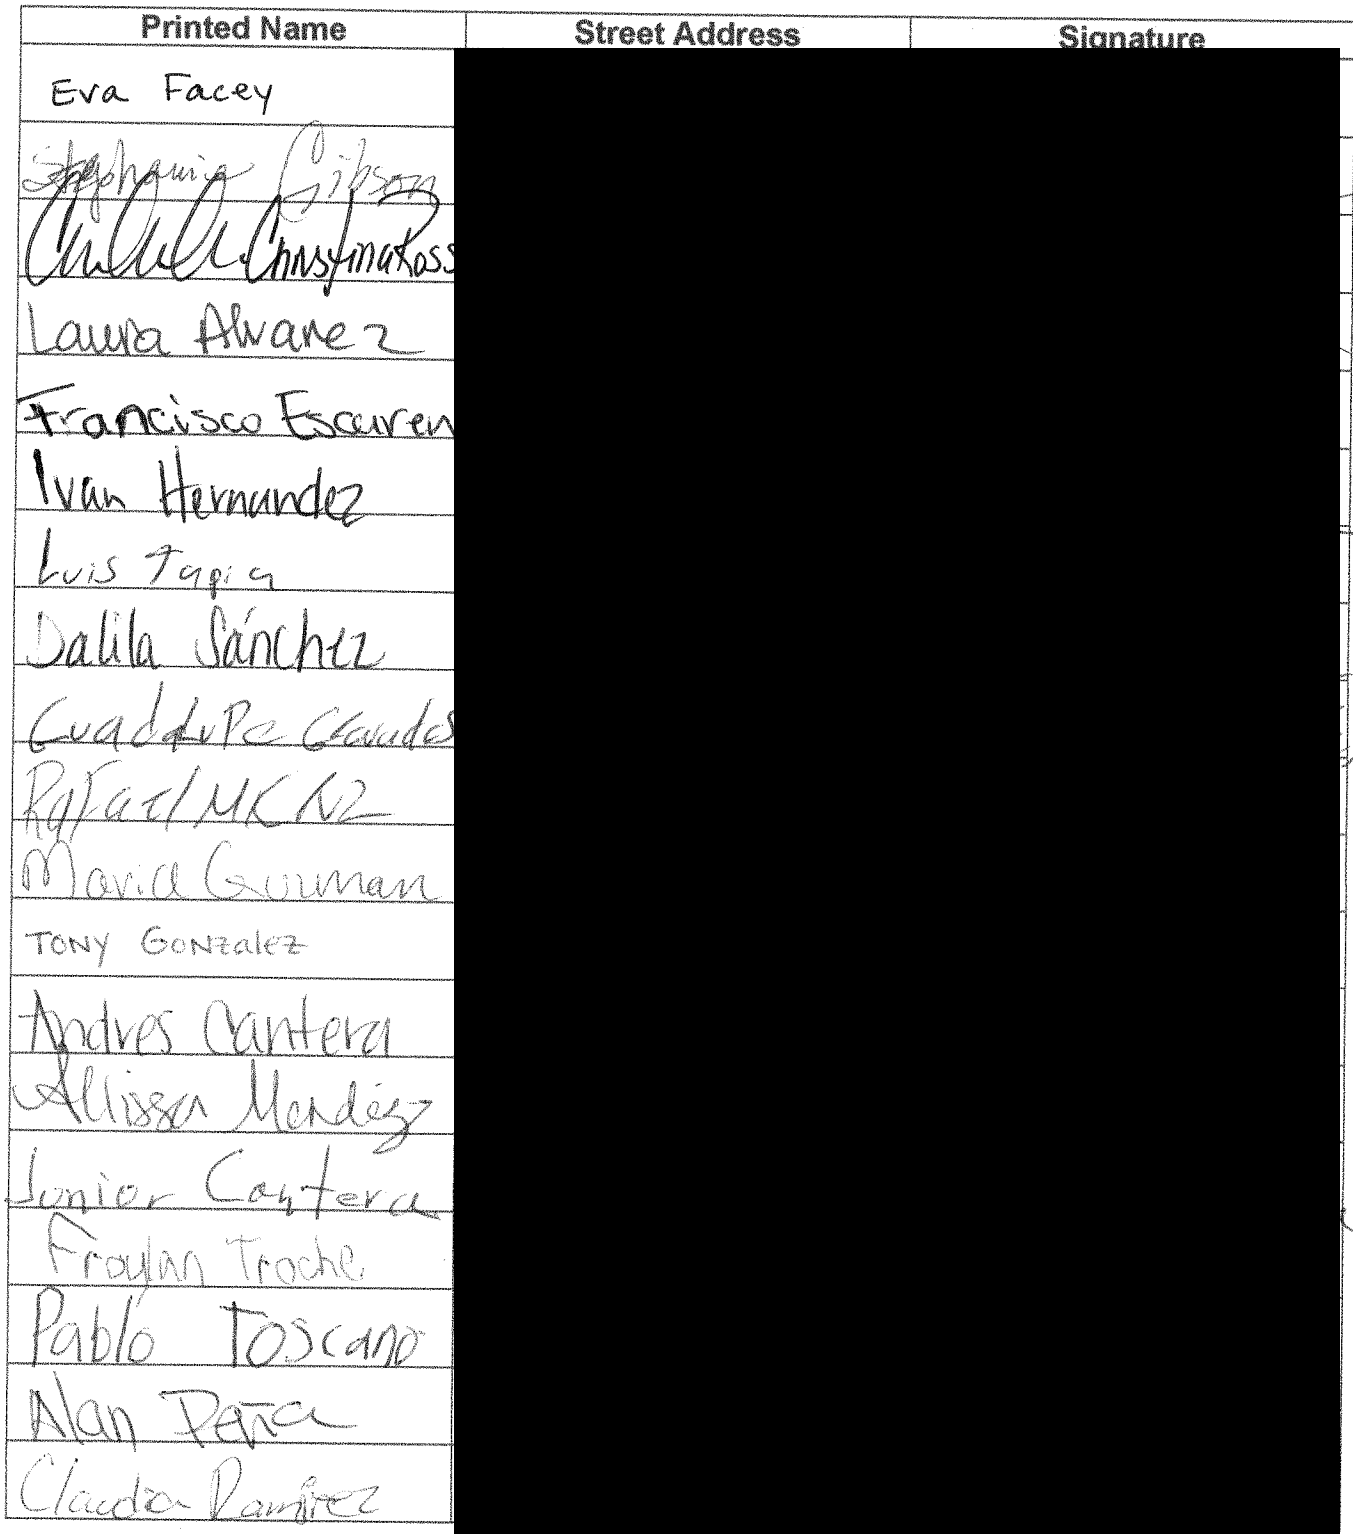 Printed Name Street Address Signature
Eva Facey
Stephanie Gibson
Christina Ross
Laura Alvarez
Francisco Escaren
Ivan Hernandez
Luis Tapia
Dalila Sánchez
Guadalupe
Rafael
Maria Guzman
TONY GONZalEZ
Andres Cantera
Allissa Mendez
Junior Cantera
Froylan Troche
Pablo Toscano
Alan Peña
Claudia Ramirez